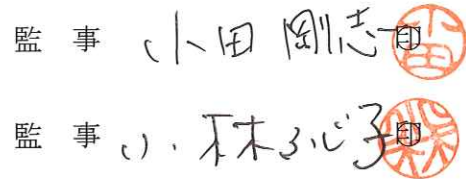 監 事 小田 剛志 印
監 事 小林ふじ子 印